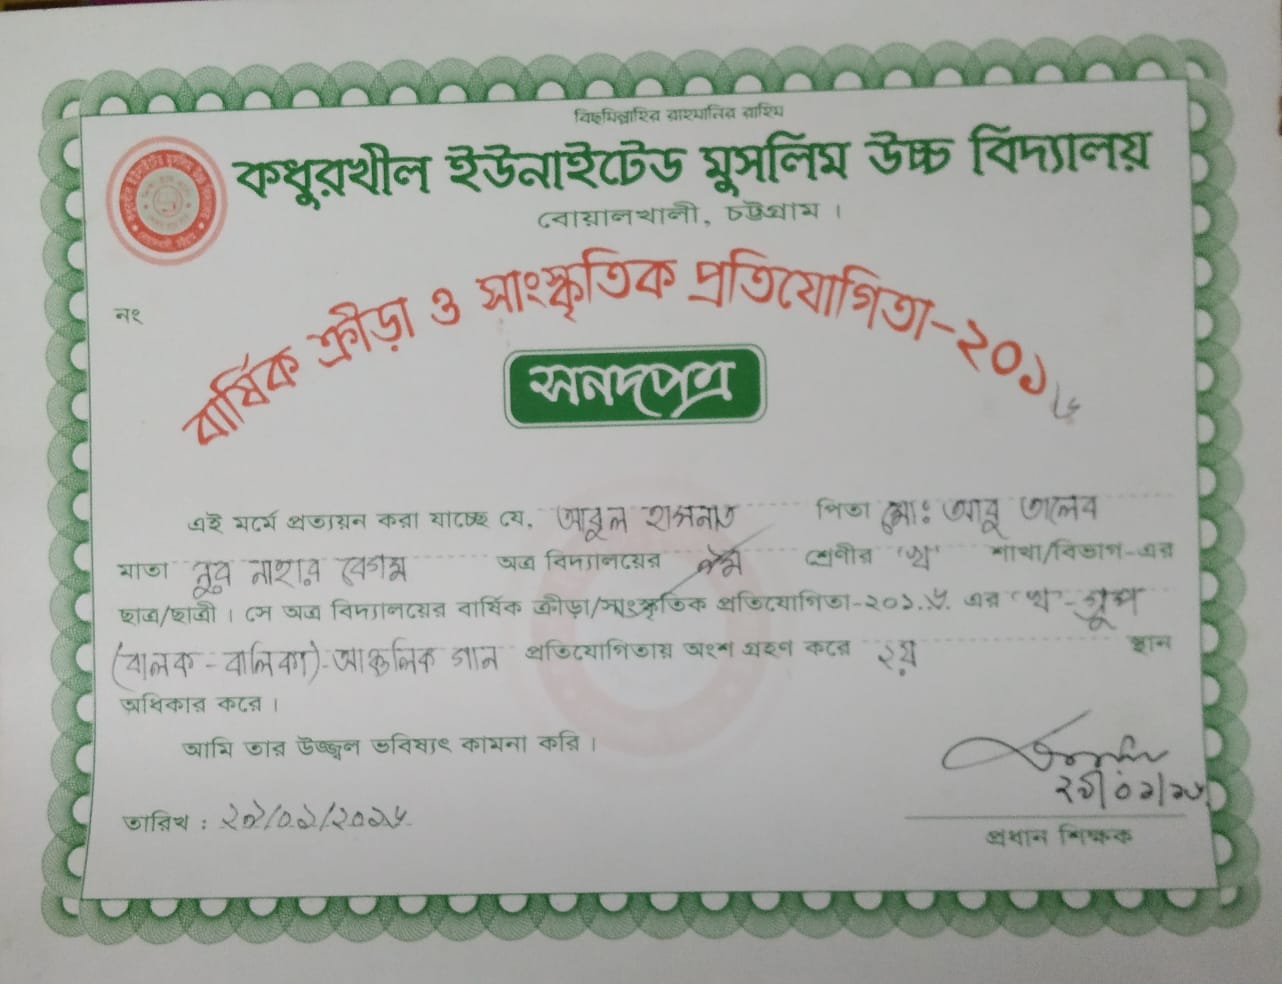 বিছমিল্লাহির রাহমানির রাহিম
কধুরখীল ইউনাইটেড মুসলিম উচ্চ বিদ্যালয়
বোয়ালখালী, চট্টগ্রাম ।
নং
বার্ষিক ক্রীড়া ও সাংস্কৃতিক প্রতিযোগিতা-২০১৬
সনদপত্র
এই মর্মে প্রত্যয়ন করা যাচ্ছে যে, আবুল হাসনাত পিতা মোঃ আবু তালেব
মাতা নুর নাহার বেগম অত্র বিদ্যালয়ের ৯ম শ্রেণীর 'খ' শাখা/বিভাগ-এর
ছাত্র/ছাত্রী । সে অত্র বিদ্যালয়ের বার্ষিক ক্রীড়া/সাংস্কৃতিক প্রতিযোগিতা-২০১৬ এর 'খ'-গ্রুপ
(বালক-বালিকা)-আঞ্চলিক গান প্রতিযোগিতায় অংশ গ্রহণ করে ২য় স্থান
অধিকার করে ।
আমি তার উজ্জ্বল ভবিষ্যৎ কামনা করি ।
তারিখ : ২১/০১/২০১৬
প্রধান শিক্ষক